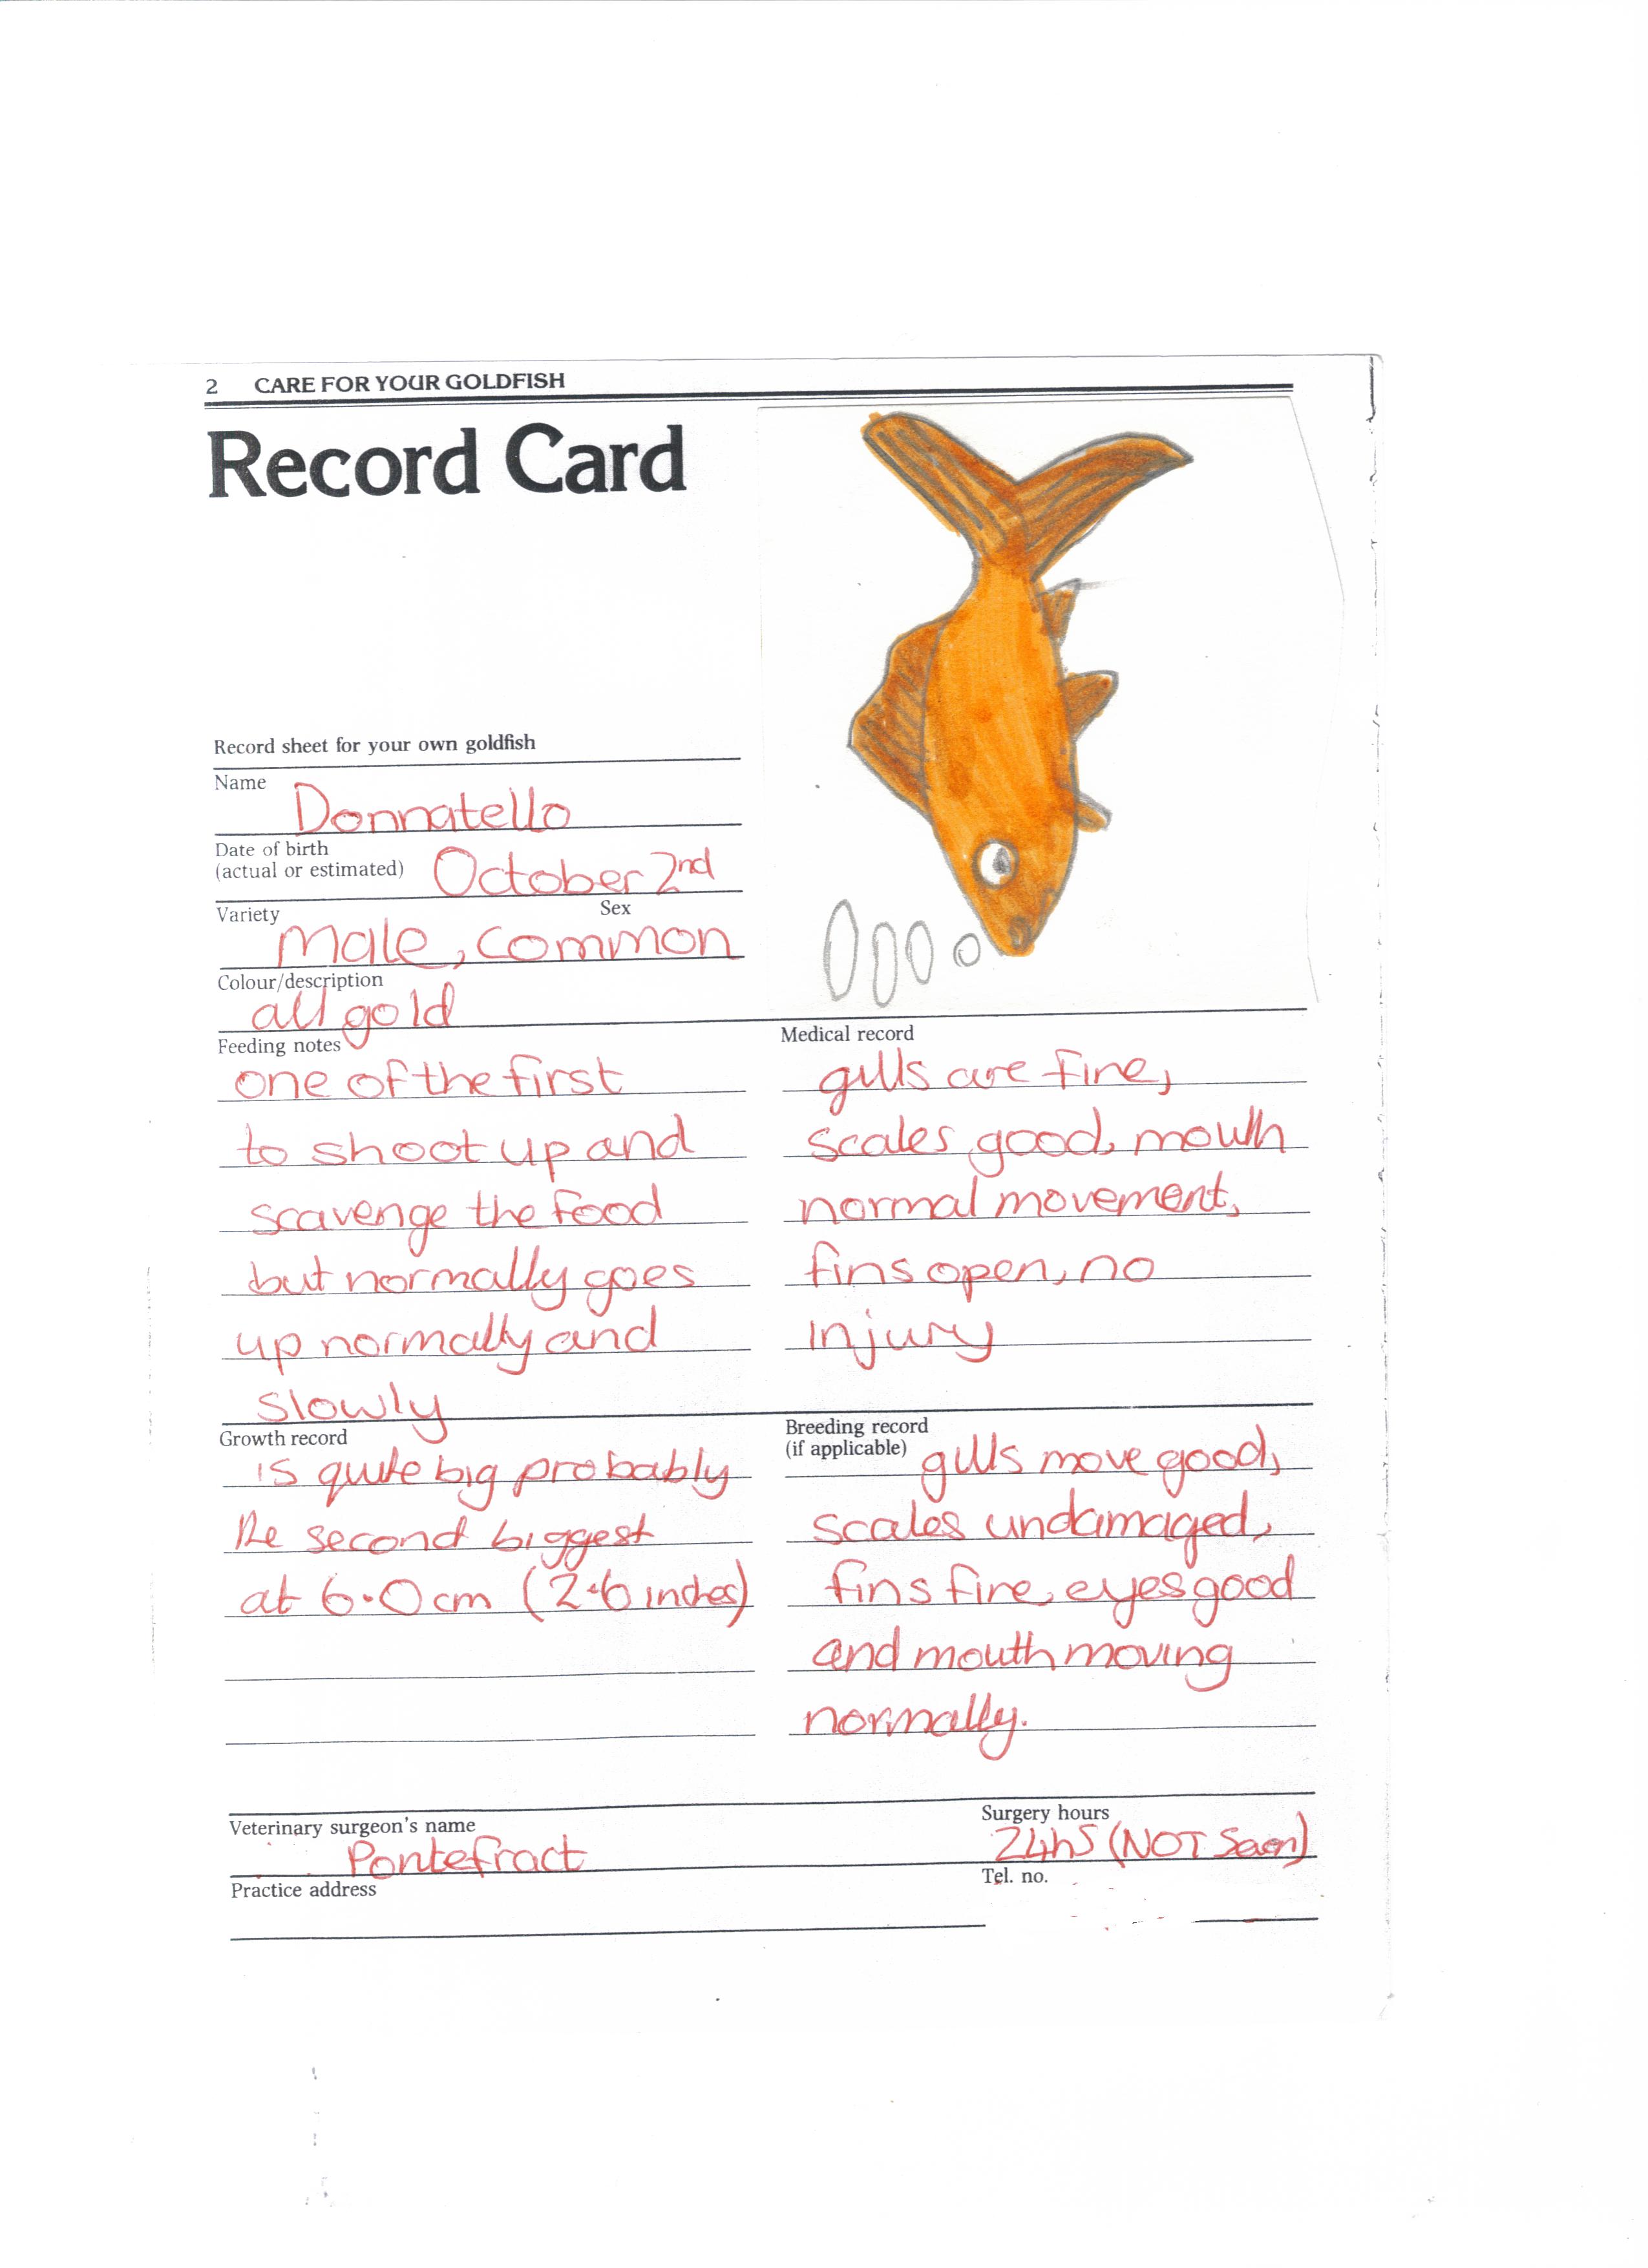 2 CARE FOR YOUR GOLDFISH
Record Card
Record sheet for your own goldfish
Name
Donnatello
Date of birth
(actual or estimated) October 2nd
Variety Sex
Male, common
Colour/description
all gold
Feeding notes
one of the first
to shoot up and
scavenge the food
but normally goes
up normally and
slowly
Medical record
gills are fine,
scales good, mouth
normal movement,
fins open, no
injury
Growth record
is quite big probably
the second biggest
at 6.0cm (2.6 inches)
Breeding record
(if applicable) gills move good,
scales undamaged,
fins fine, eyes good
and mouth moving
normally.
Veterinary surgeon's name
Pontefract
Surgery hours
24hs (NOT Seen)
Practice address
Tel. no.